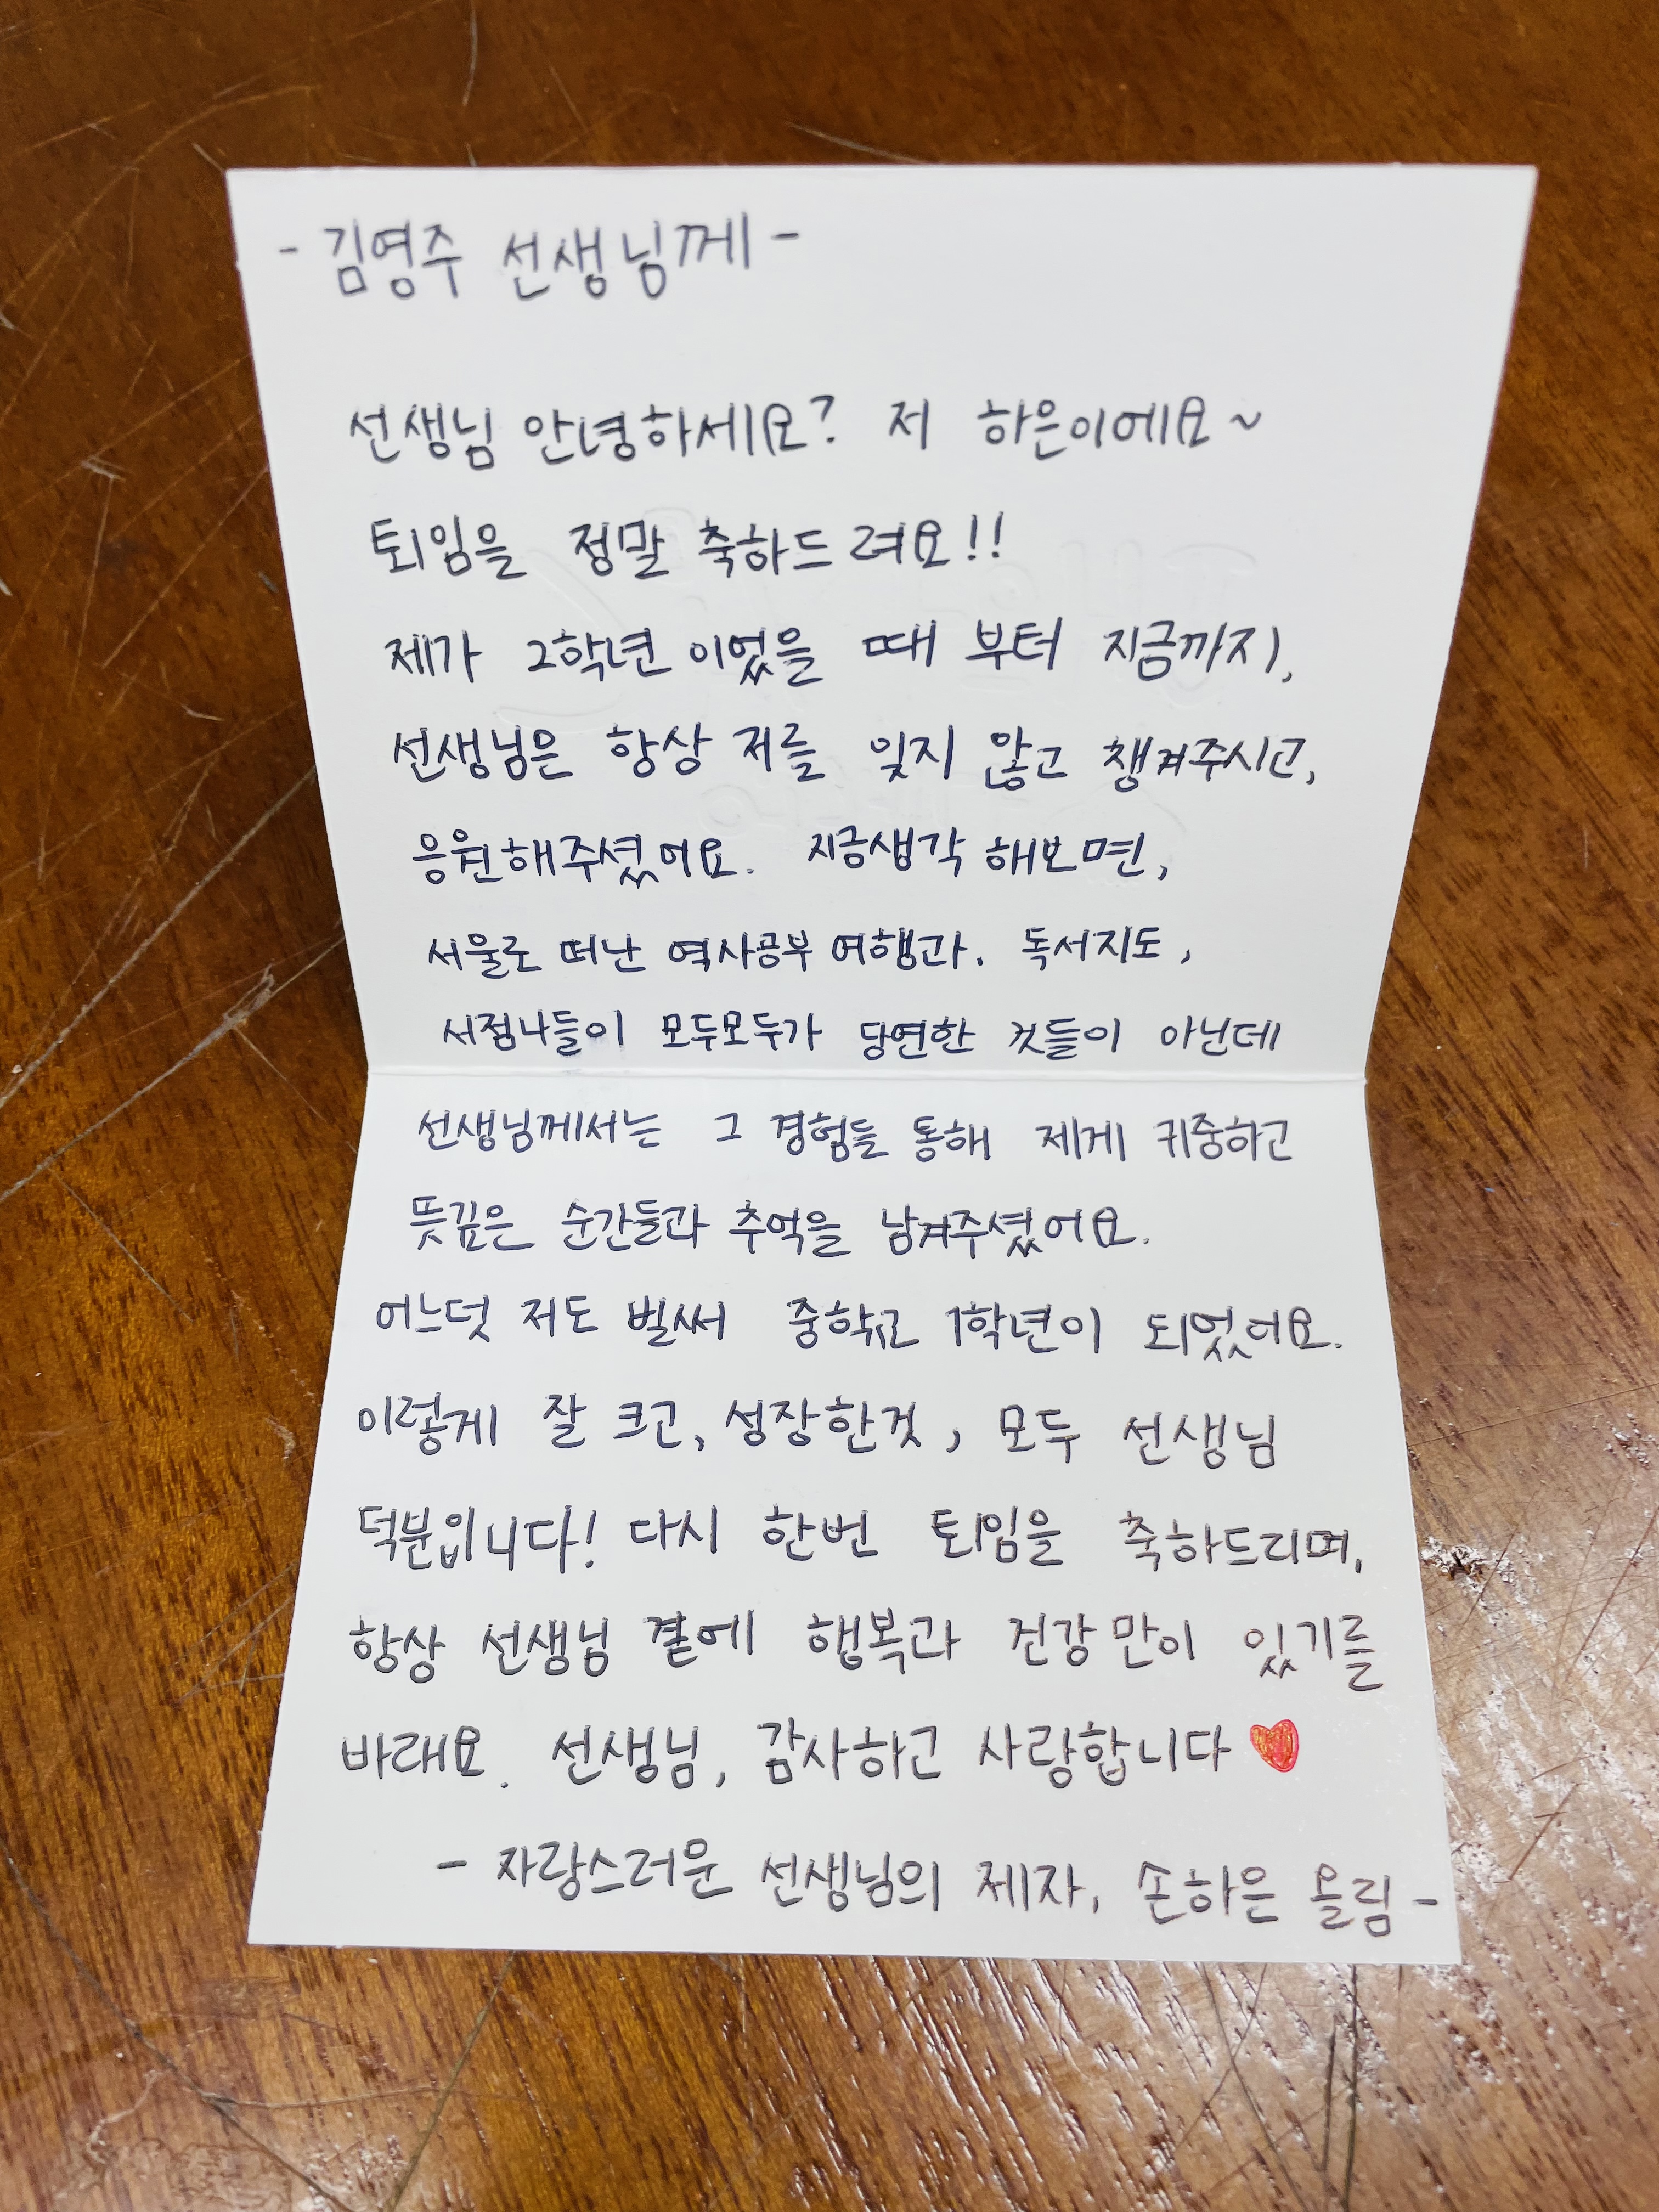 - 김영주 선생님께 -
선생님 안녕하세요? 저 하은이에요~
퇴임을 정말 축하드려요!!
제가 2학년 이었을 때 부터 지금까지,
선생님은 항상 저를 잊지 않고 챙겨주시고,
응원해주셨어요. 지금생각 해보면,
서울로 떠난 역사공부 여행과. 독서지도,
서점나들이 모두모두가 당연한 것들이 아닌데
선생님께서는 그 경험들 통해 제게 귀중하고
뜻깊은 순간들과 추억을 남겨주셨어요.
어느덧 저도 벌써 중학교 1학년이 되었어요.
이렇게 잘 크고, 성장한것, 모두 선생님
덕분입니다! 다시 한번 퇴임을 축하드리며,
항상 선생님 곁에 행복과 건강만이 있기를
바래요. 선생님, 감사하고 사랑합니다
- 자랑스러운 선생님의 제자, 손하은 올림 -